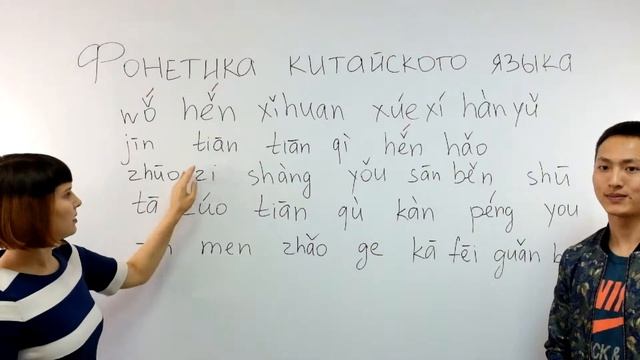 Фонетика китайского языка
wǒ hěn xǐhuan xúexí hànyǔ
jīn tiān tiān qì hěn hǎo
zhuōzi shàng yǒu sān běn shū
tā zúo tiān qù kàn péng you
men zhǎo ge kā fēi guǎn
NIKE